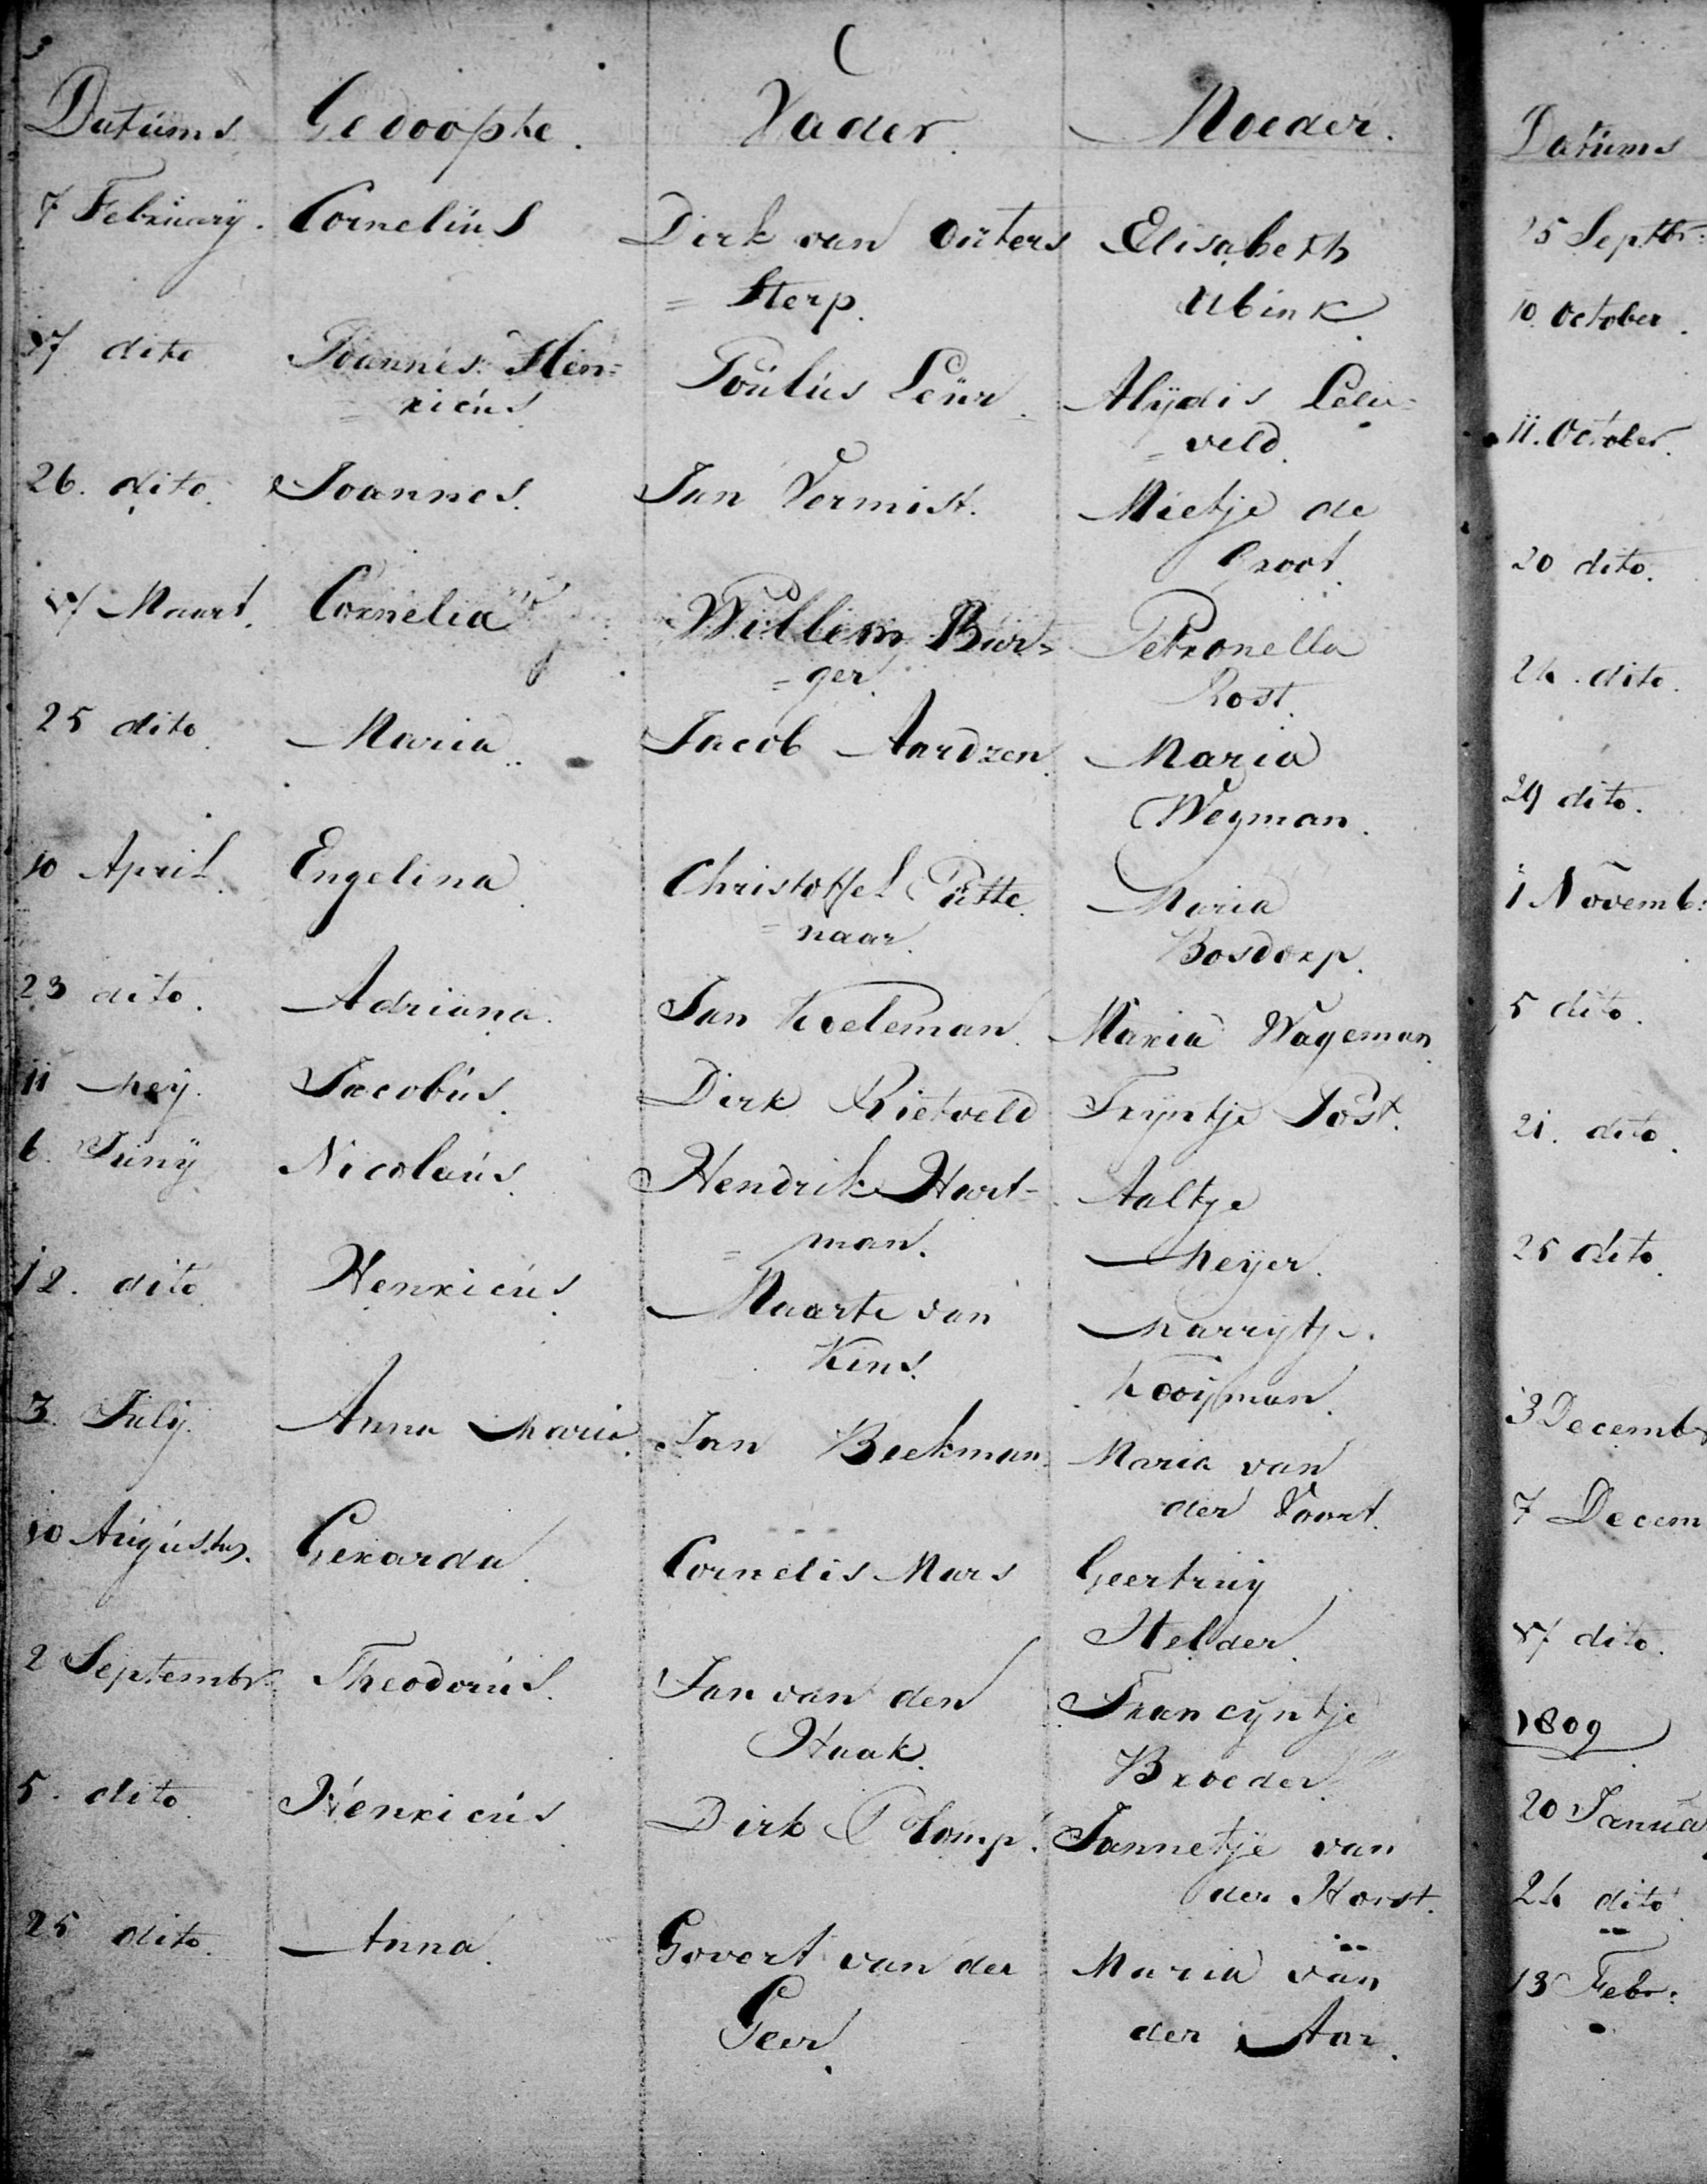 Datums Gedoopte. Vader. Moeder.
7 February. Cornelius Dirk van Outers Elisabeth
= sterp. Ubink
17 dito Joannes Hen=
= ricus Poulus Leur Alijdis Leeu=
= veld.
26. dito. Joannes. Jan Vermist. Mietje de
Groot.
17 Maart. Cornelia Willem Bur= Petronella
= ger. Rost.
25 dito. Maria. Jacob Aardzen. Maria
Weyman.
10 April. Engelina Christoffel Putte Maria
= naar. Bosdorp.
23 dito. Adriana. Jan Koeleman. Maria Wageman
11 Mey. Jacobus. Dirk Rietveld Tryntje Post.
6. Juny Nicolaus. Hendrik Hart= Aaltje
= man. Meyer.
12. dito Henricus Maarte van Marrytje.
Kins. Kooijman.
3. July. Anna Maria. Jan Beekman Maria van
der Voort.
10 Augustus. Gerarda Cornelis Mars Geertruy
Helder.
2 Septembr. Theodorus. Jan van den Francyntje
Haak. Broeder
5. dito Henricus Dirk Plomp. Jannetje van
der Horst.
25 dito. Anna. Govert van der Maria van
Geer. der Aar.
Datums
25 Septbr:
10. October.
11. October.
20 dito.
24. dito.
29 dito.
1 Novemb:
5 dito.
21. dito.
25 dito.
3 Decembr
7 Decem
17 dito.
1809
20 Janua
24 dito
13 Febr: